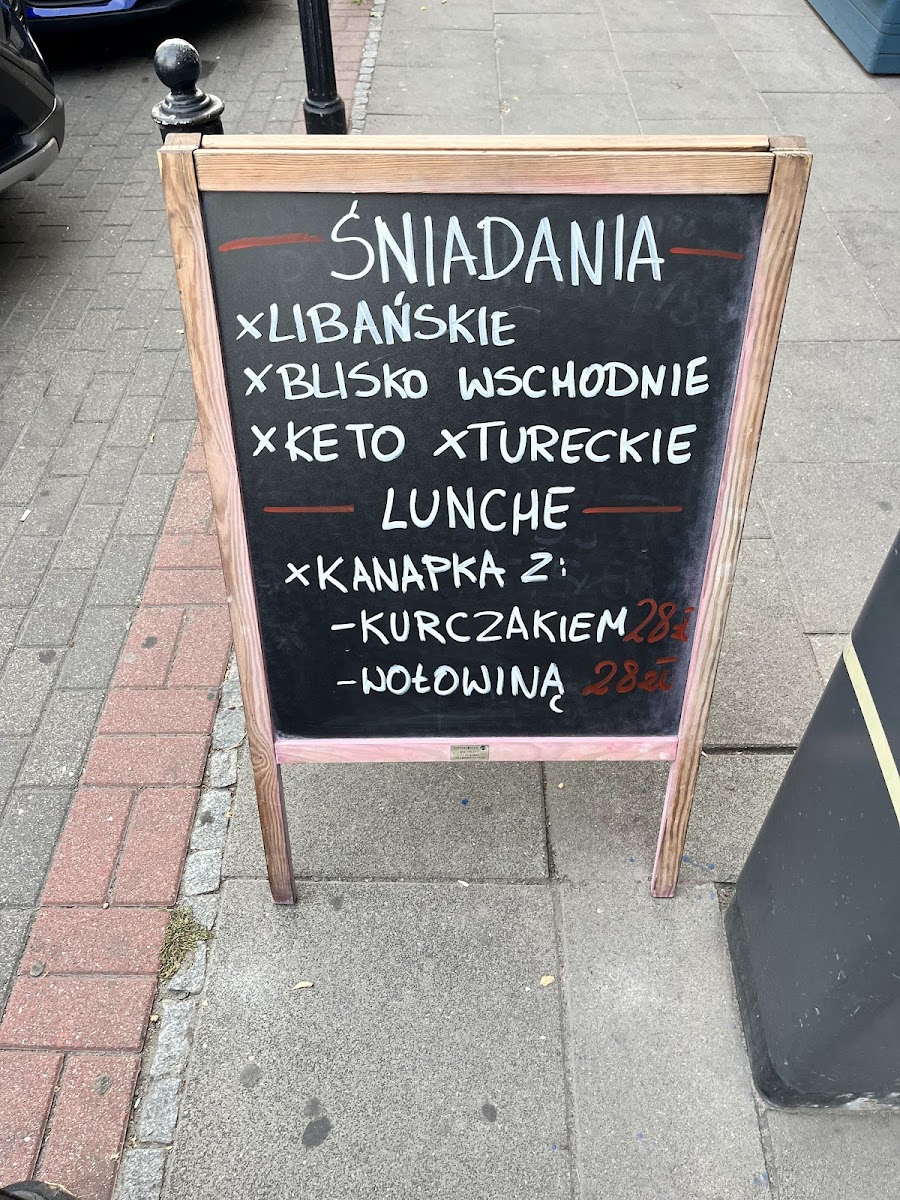 ŚNIADANIA
×LIBAŃSKIE
×BLISKO WSCHODNIE
×KETO ×TURECKIE
LUNCHE
×KANAPKA Z:
-KURCZAKIEM 28zł
-WOŁOWINĄ 28zł